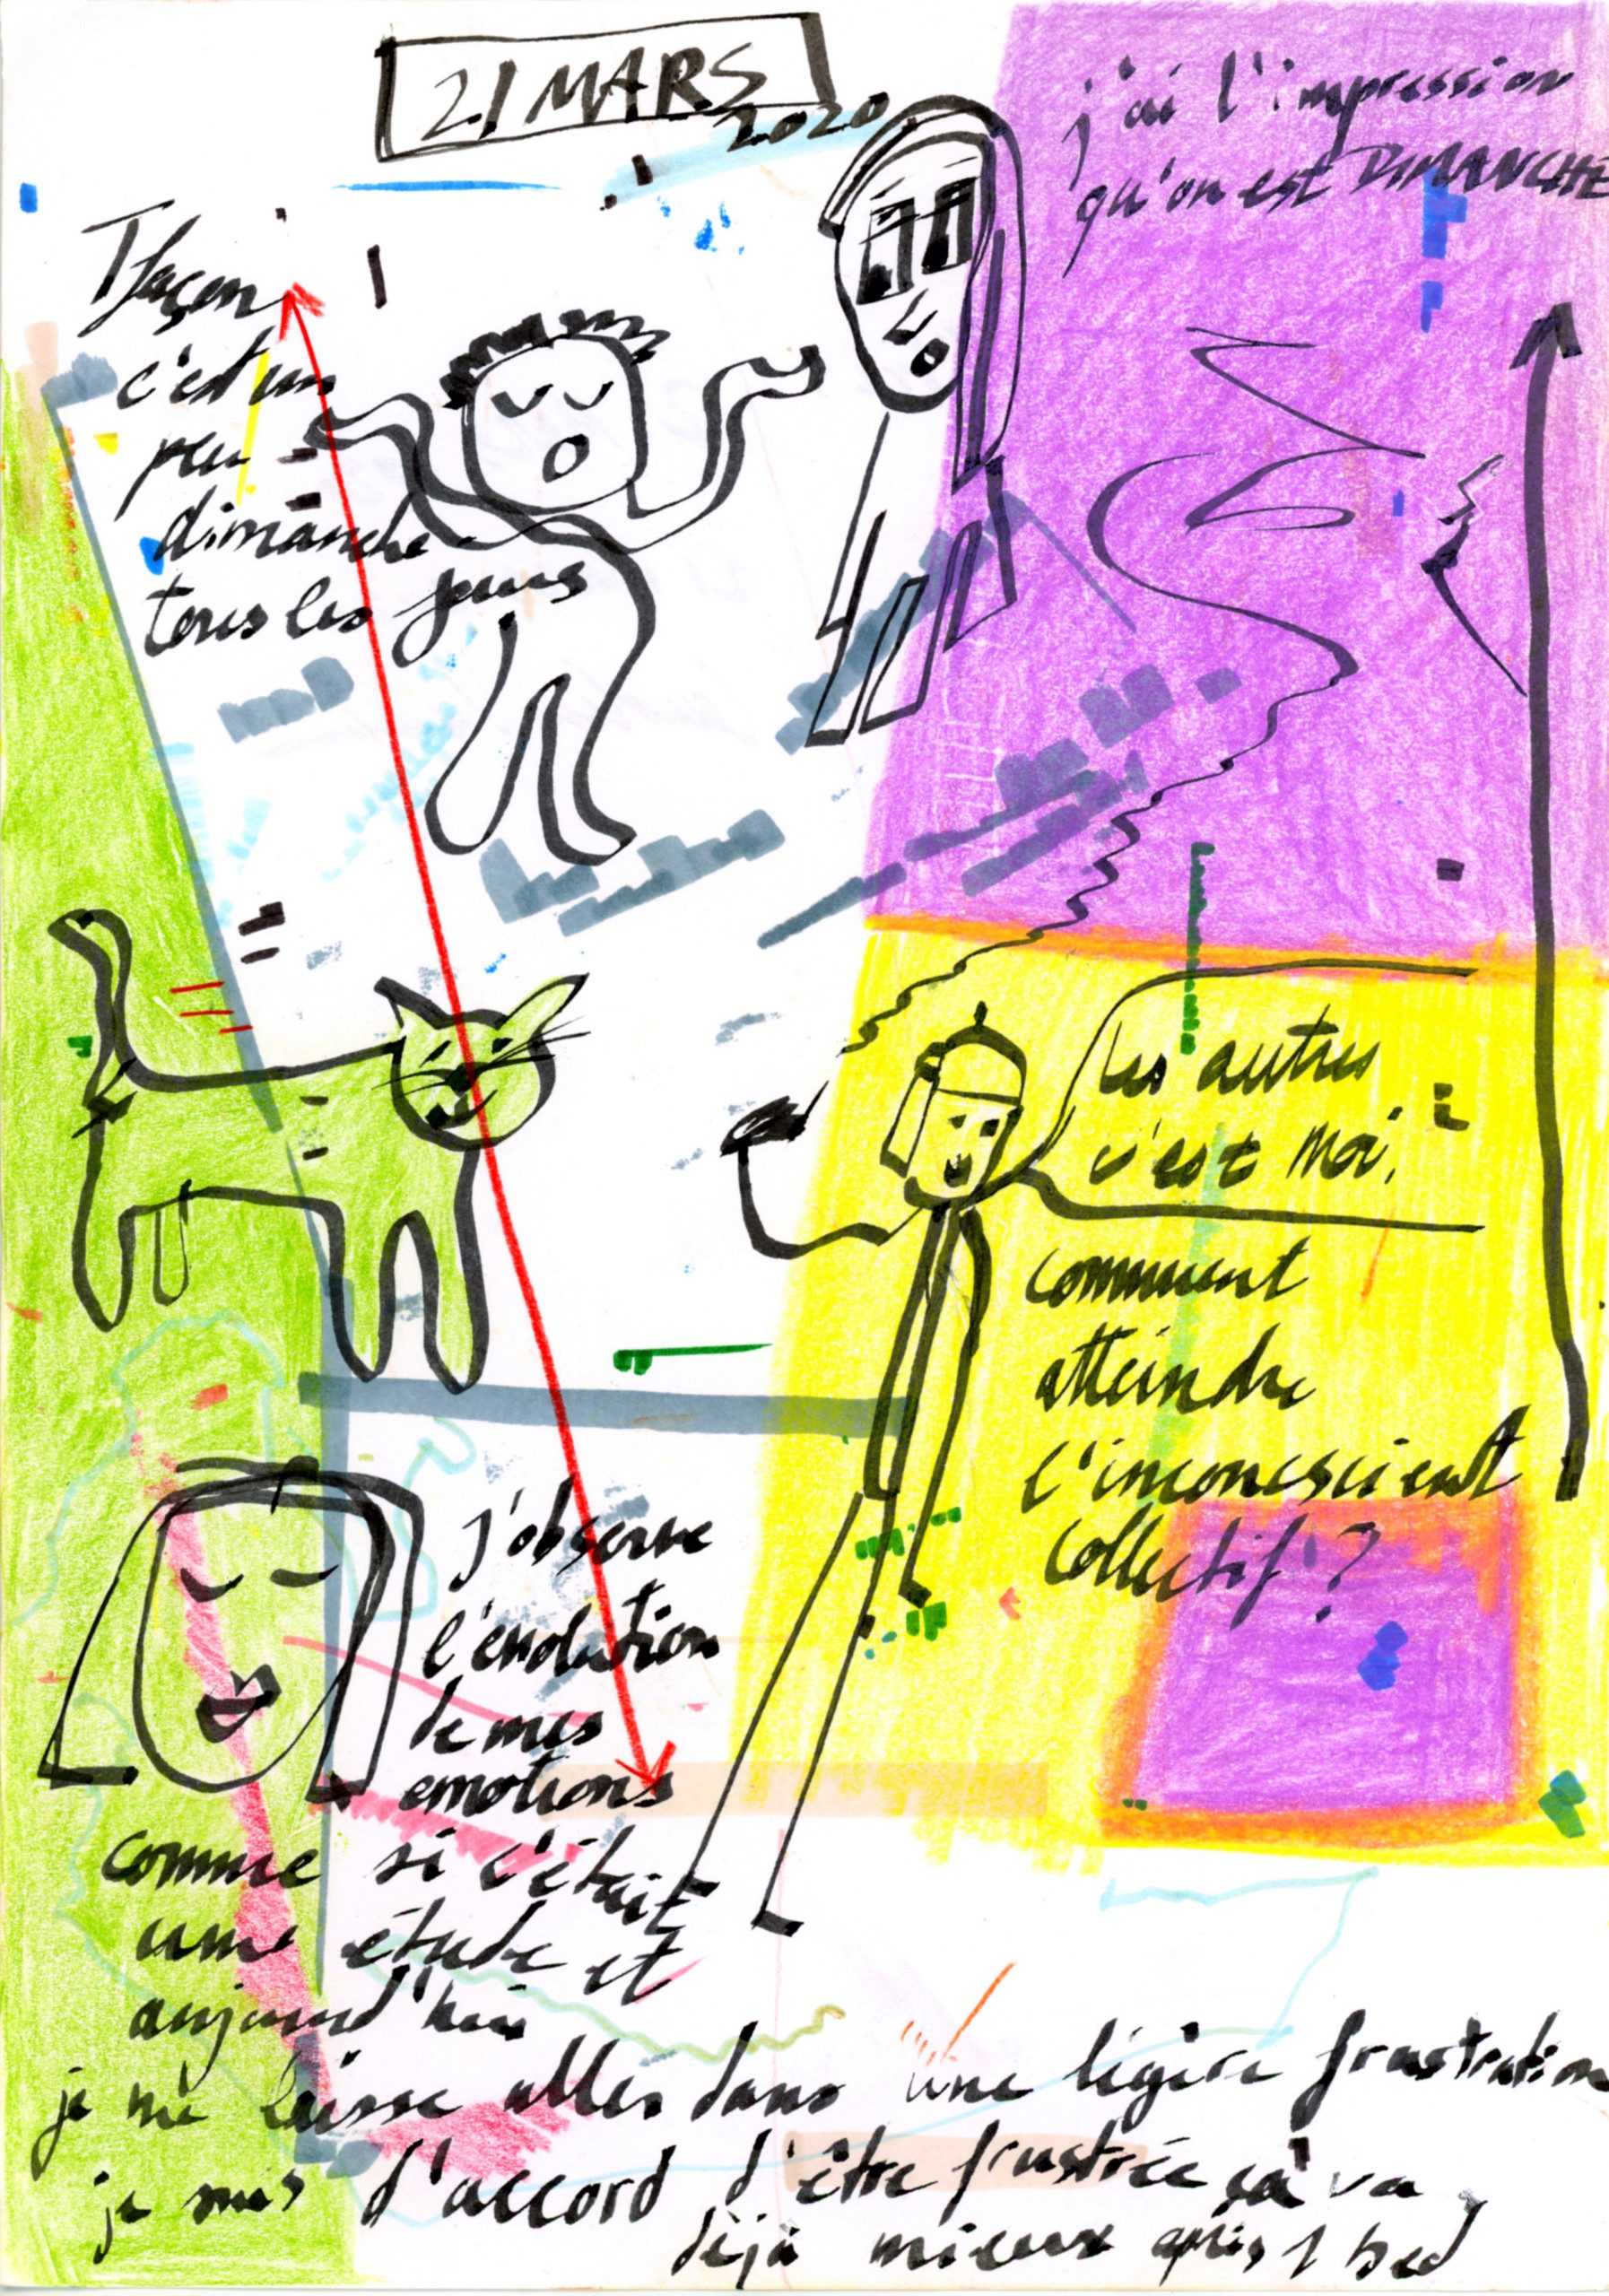 21 MARS
2020
j'ai l'impression
qu'on est DIMANCHE
T façon
c'est un
peu
dimanche
tous les jours
les autres
c'est moi
comment
atteindre
l'inconcscient
collectif ?
j'observe
l'évolution
de mes
emotions
comme si c'était
une étude et
aujourd'hui
je me laisse aller dans une légère frustration
je suis d'accord d'être frustrée ça va
déjà mieux après 1